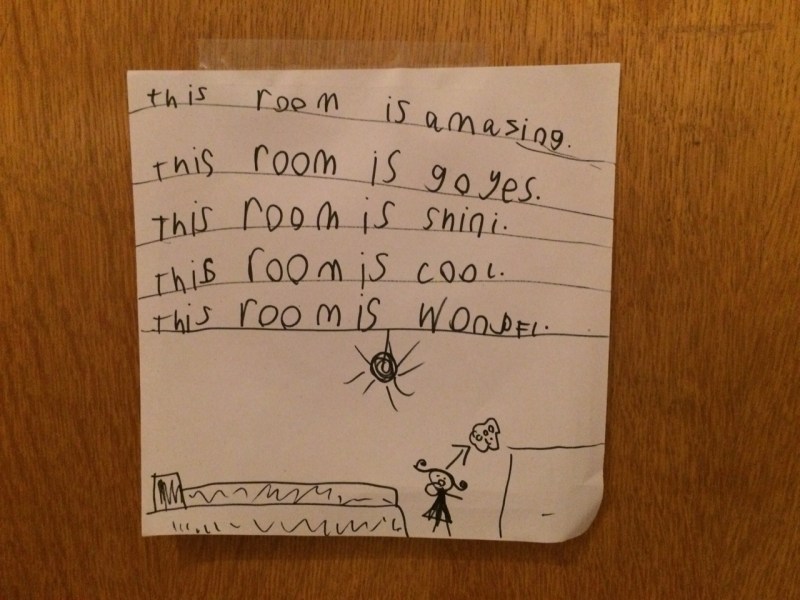 this room is amazing.
this room is goyes.
this room is shini.
this room is cool.
this room is wonDFl.